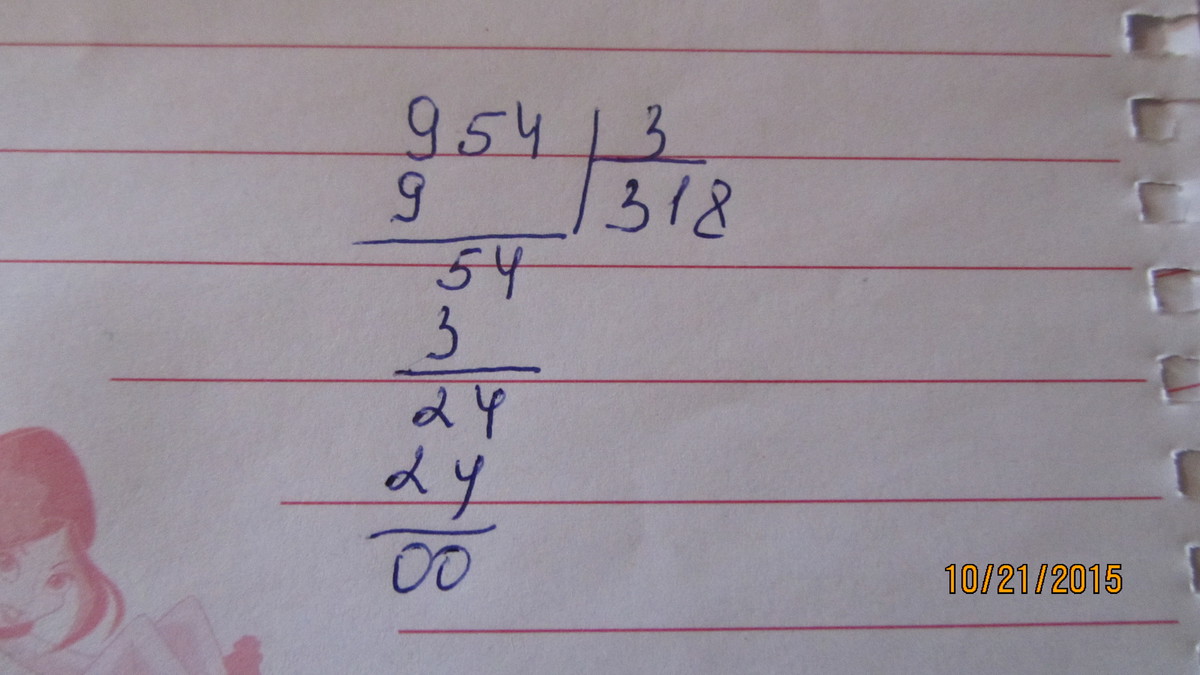 954 | 3
9 | 318
54
3
24
24
00
10/21/2015